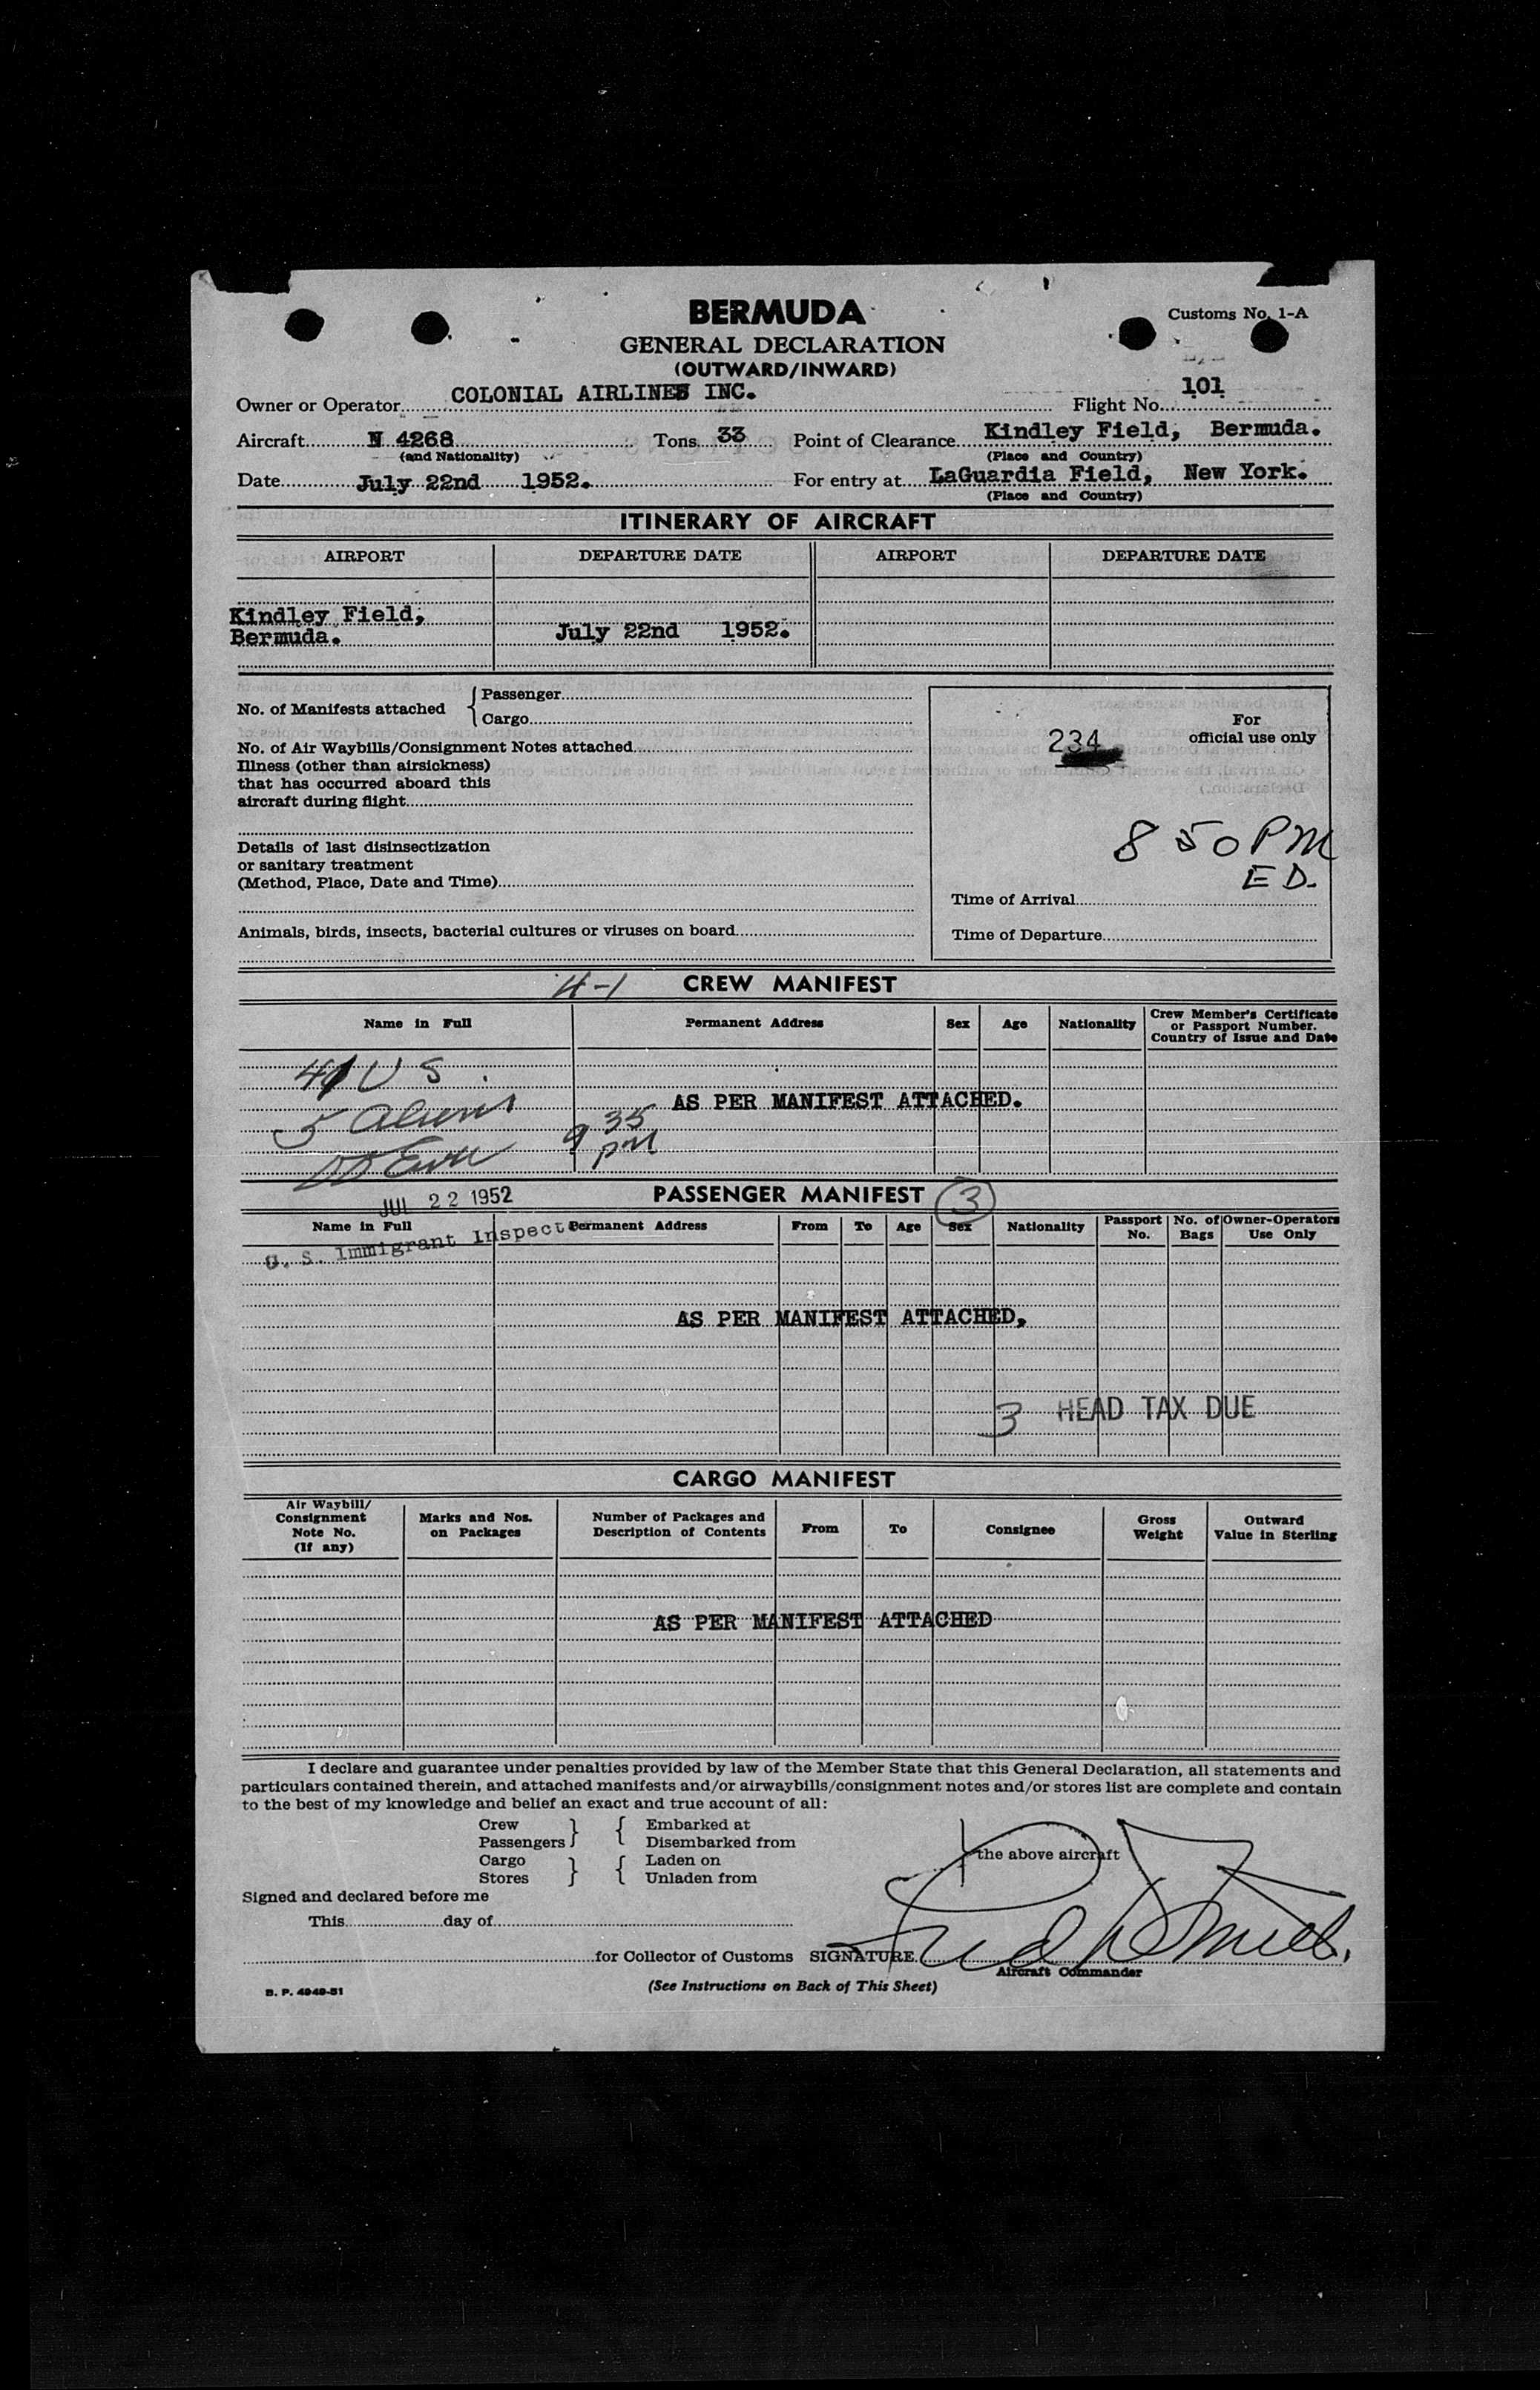 BERMUDA
Customs No. 1-A
GENERAL DECLARATION
(OUTWARD/INWARD)
Owner or Operator COLONIAL AIRLINES INC. Flight No. 101
Aircraft N 4268 Tons 33 Point of Clearance Kindley Field, Bermuda.
(and Nationality) (Place and Country)
Date July 22nd 1952. For entry at LaGuardia Field, New York.
(Place and Country)
ITINERARY OF AIRCRAFT
AIRPORT DEPARTURE DATE AIRPORT DEPARTURE DATE
Kindley Field,
Bermuda. July 22nd 1952.
No. of Manifests attached { Passenger
Cargo
For
official use only
234
No. of Air Waybills/Consignment Notes attached
Illness (other than airsickness)
that has occurred aboard this
aircraft during flight
Details of last disinsectization
or sanitary treatment
(Method, Place, Date and Time)
8 50 PM
ED.
Time of Arrival
Animals, birds, insects, bacterial cultures or viruses on board
Time of Departure
4-1 CREW MANIFEST
Name in Full Permanent Address Sex Age Nationality Crew Member's Certificate
or Passport Number.
Country of Issue and Date
41 US.
5 Aliens
AS PER MANIFEST ATTACHED.
9 35
PM
JUL 22 1952
PASSENGER MANIFEST 3
Name in Full Permanent Address From To Age Sex Nationality Passport No. No. of Bags Owner-Operators Use Only
U. S. Immigrant Inspector
AS PER MANIFEST ATTACHED.
3 HEAD TAX DUE
CARGO MANIFEST
Air Waybill/
Consignment
Note No.
(If any)
Marks and Nos.
on Packages
Number of Packages and
Description of Contents
From To Consignee
Gross
Weight
Outward
Value in Sterling
AS PER MANIFEST ATTACHED
I declare and guarantee under penalties provided by law of the Member State that this General Declaration, all statements and
particulars contained therein, and attached manifests and/or airwaybills/consignment notes and/or stores list are complete and contain
to the best of my knowledge and belief an exact and true account of all:
Crew } { Embarked at
Passengers Disembarked from
the above aircraft
Cargo } { Laden on
Stores Unladen from
Signed and declared before me
This day of
for Collector of Customs SIGNATURE
Aircraft Commander
(See Instructions on Back of This Sheet)
B. P. 4949-51